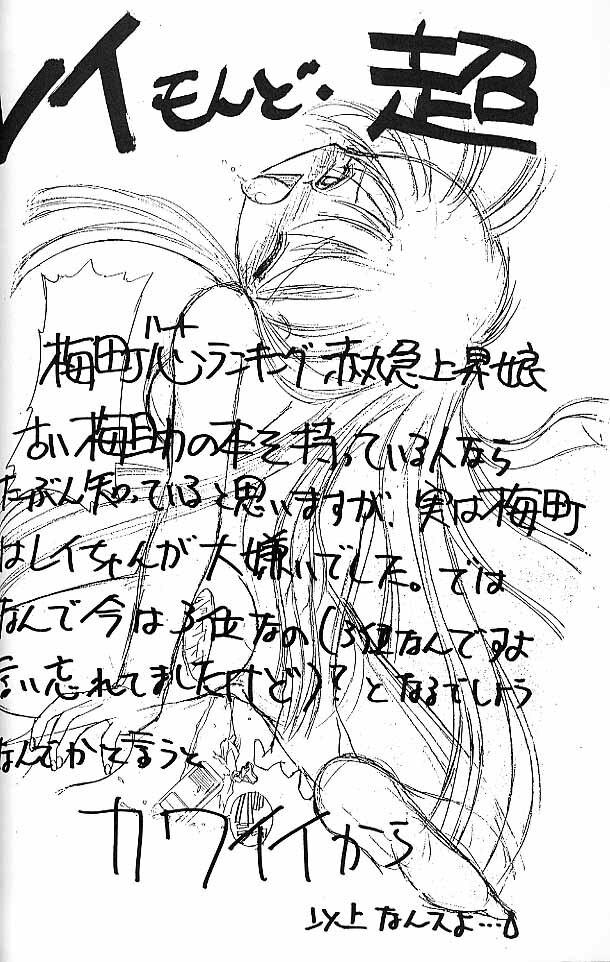 レイもんど・超
梅町心ランキング赤丸急上昇娘
ハート
古い梅町の本を持っている人なら
たぶん知っていると思いますが、実は梅町
はレイちゃんが大嫌いでした。では
なんで今は3位なの（3位なんですよ
言い忘れてましたけど）？となるでしょう
なんでかと言うと
カワイイから
以上なんスよ…。